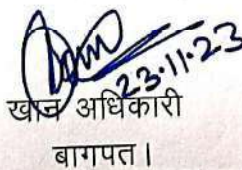 23.11.23
खान अधिकारी
बागपत।